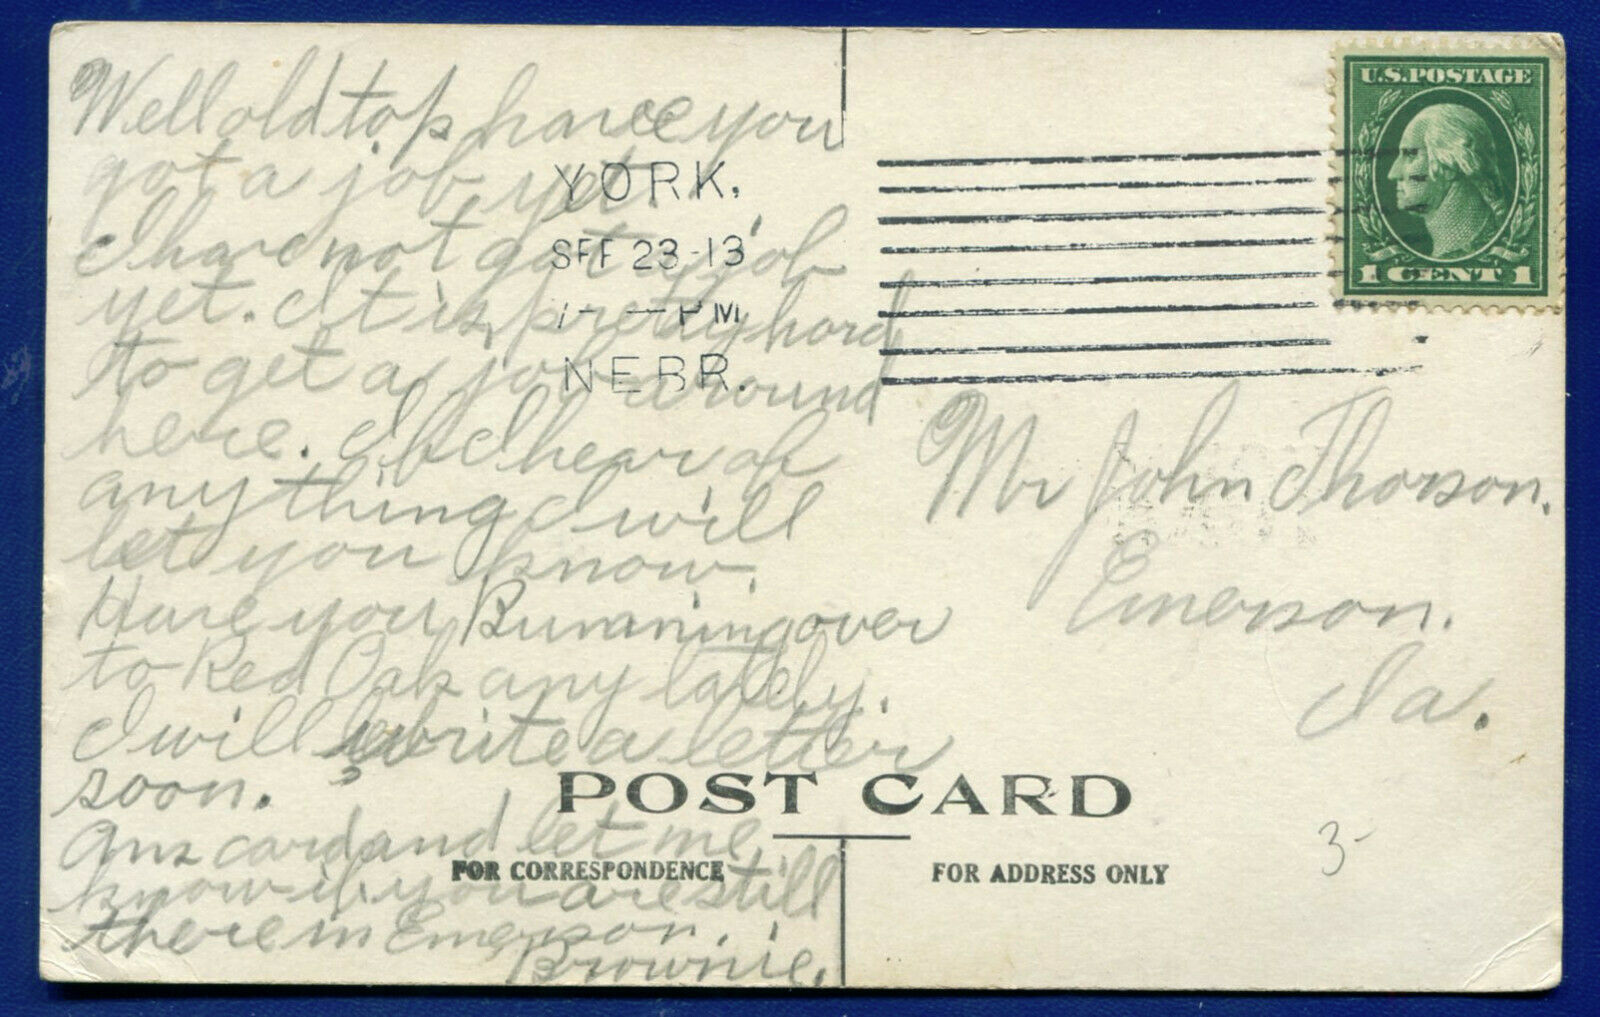 Well old top have you
got a job yet
I have not got a job
yet. It is pretty hard
to get a job around
here. If I hear of
anything I will
let you know.
Have you Bumming over
to Red Oak any lately.
I will write a letter
soon.
Ans card and let me
know if you are still
there in Emerson.
Brownie.
YORK,
SEP 23-13
PM
NEBR.
U.S. POSTAGE
1 CENT 1
Mr John Thorson.
Emerson.
Ia.
POST CARD
FOR CORRESPONDENCE
FOR ADDRESS ONLY
3-